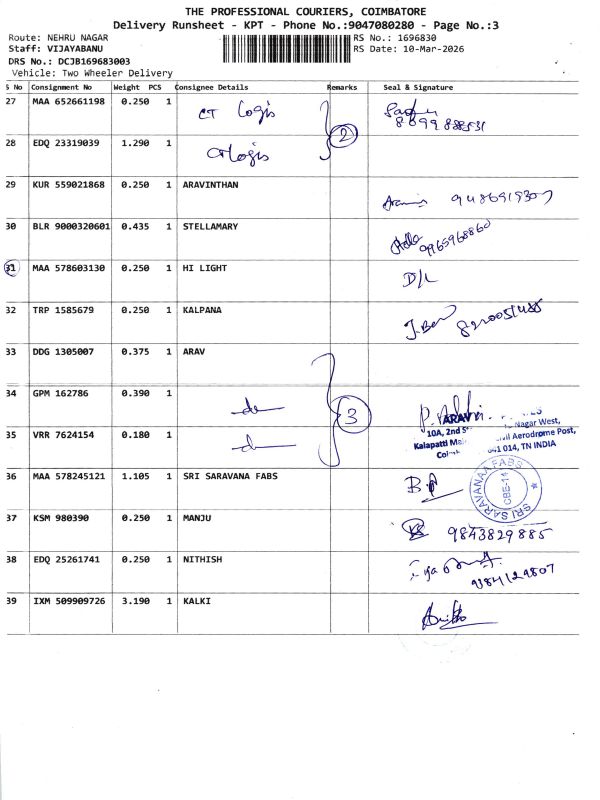 THE PROFESSIONAL COURIERS, COIMBATORE
Delivery Runsheet - KPT - Phone No.:9047080280 - Page No.:3
Route: NEHRU NAGAR RS No.: 1696830
Staff: VIJAYABANU RS Date: 10-Mar-2026
DRS No.: DCJB169683003
Vehicle: Two Wheeler Delivery
S No Consignment No Weight PCS Consignee Details Remarks Seal & Signature
27 MAA 652661198 0.250 1 CT Logis
28 EDQ 23319039 1.290 1 CT Logis 2
29 KUR 559021868 0.250 1 ARAVINTHAN
30 BLR 9000320601 0.435 1 STELLAMARY 9965968860
31 MAA 578603130 0.250 1 HI LIGHT D/L
32 TRP 1585679 0.250 1 KALPANA
33 DDG 1305007 0.375 1 ARAV
34 GPM 162786 0.390 1 3
ARAV
10A, 2nd Nagar West,
35 VRR 7624154 0.180 1 Kalapatti Aerodrome Post,
641 014, TN INDIA
36 MAA 578245121 1.105 1 SRI SARAVANA FABS SRI SARAVANAA FABS CBE-14
37 KSM 980390 0.250 1 MANJU 9843829885
38 EDQ 25261741 0.250 1 NITHISH 9384129807
39 IXM 509909726 3.190 1 KALKI